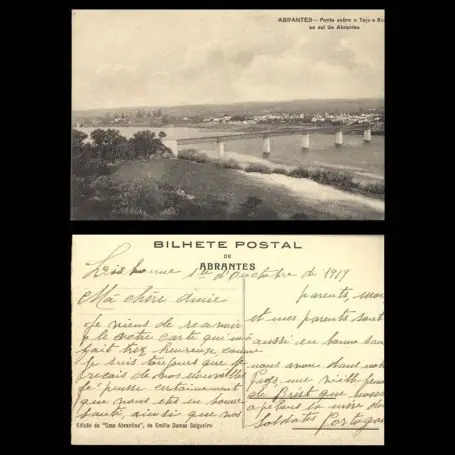 ABRANTES—Ponte sobre o Tejo e Ro
ao sul de Abrantes
BILHETE POSTAL
DE
ABRANTES
Lisbonne 1er d'Auctobre de 1919
Má chère amie
Je viens de recevoir
le votre carte qui m'a
fait trez heureuze comme
Je suis toujours que je
reçois de vos nouvelles
Je pense certainement
que vous ets en bonne
santé, ainsi que vos
parents, moi
et mes parents sont
aussi en bonne san
nous avons dans
une vielle
de Brést que nous
apelons la mère des
Soldates Portugai
Edição da "Casa Abrantina", de Emilia Damas Salgueiro